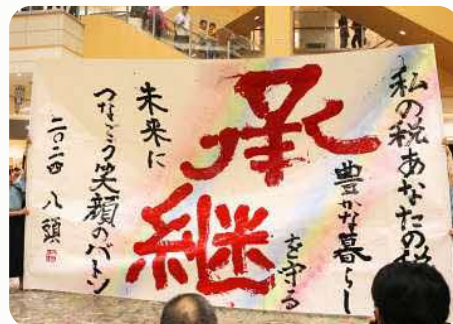 私の税あなたの税
豊かな暮らし
を守る
承継
未来に
つなごう笑顔のバトン
二〇二四 八頭